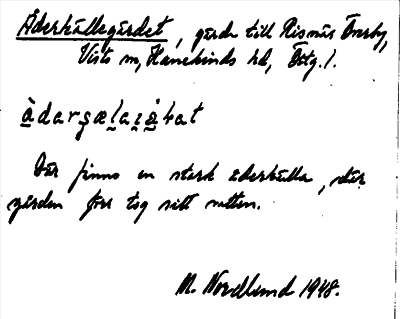 Åderkällegärdet, gärde till Risnäs Översby,
Vists sn, Hanekinds hd, Östg.l.
àdarçælajǽṭat
Där finns en stark åderkälla, där
gården förr tog sitt vatten.
M. Nordlund 1948.